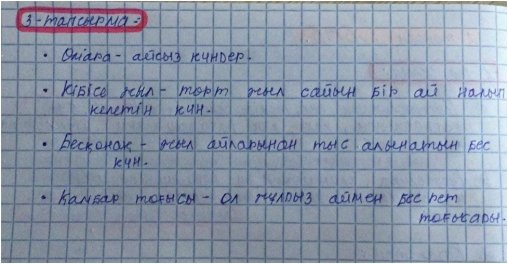 3-тапсырма:
• Өліара - айсыз күндер.
• Кібісе жыл - төрт жыл сайын бір ай
келетін күн.
• Бесқонақ - жыл айларынан тыс алынатын бес
күн.
• Қамбар тоғысы - ол жұлдыз аймен бес рет
тоғысады.